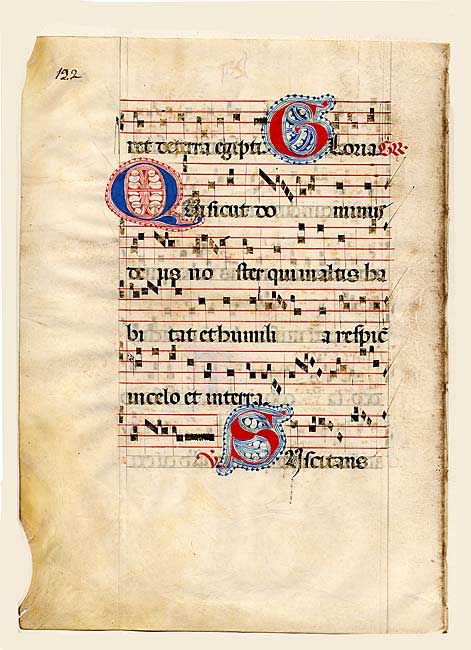 122
ret de terra egipti Gloria GR
QUis sicut dominus
deus noster qui in altis ha
bitat et humilia respic̄
in celo et in terra
V Suscitans